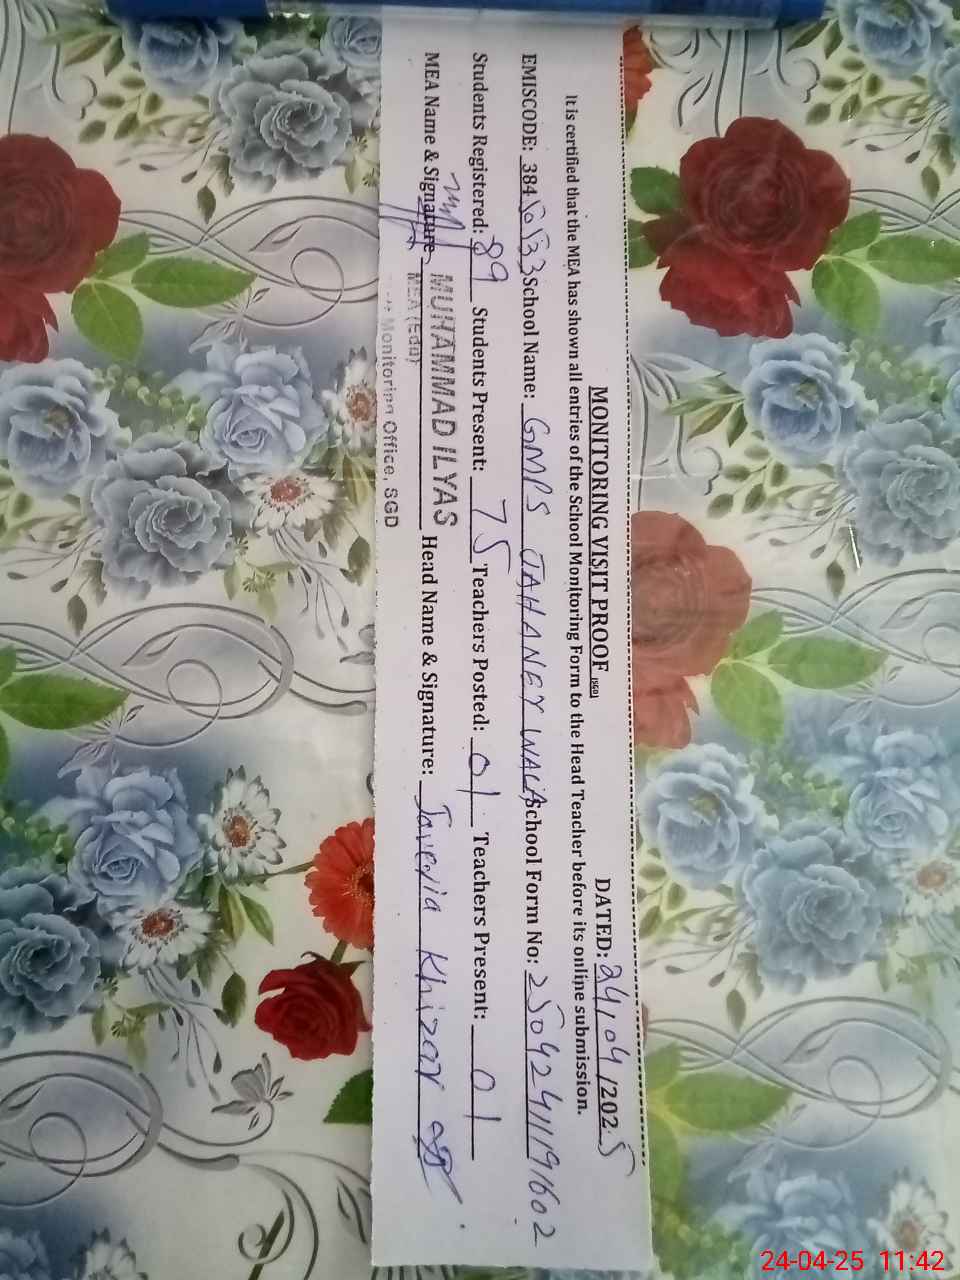 MONITORING VISIT PROOF (SGD) DATED: 24/04/2025
It is certified that the MEA has shown all entries of the School Monitoring Form to the Head Teacher before its online submission.
EMISCODE: 384 School Name: GMPS JAHANGY WALA School Form No: 25042411191602
Students Registered: 89 Students Present: 75 Teachers Posted: 01 Teachers Present: 01
MEA Name & Signature MUHAMMAD ILYAS Head Name & Signature: Javeria Khizar
MEA (Edu)
Monitoring Office, SGD
24-04-25 11:42